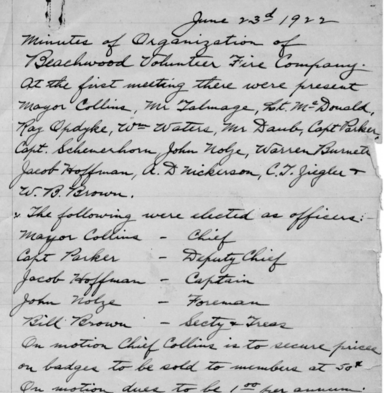 June 23rd 1922
Minutes of Organization of
Beachwood Volunteer Fire Company.
At the first meeting there were present
Mayor Collins, Mr Talmage, Lut. McDonald,
Ray Opdyke, Wm Waters, Mr Daub, Capt Parker,
Capt. Schemerhorn John Nolze, Warren Burnett
Jacob Hoffman, A. D Nickerson, C. T. Ziegler +
W. B. Brown.
The following were elected as officers:-
Mayor Collins - Chief
Capt Parker - Deputy Chief
Jacob Hoffman - Captain
John Nolze - Foreman
Bill Brown - Secty + Treas
On motion Chief Collins is to secure prices
on badges to be sold to members at 50¢
On motion dues to be 1.00 per annum.